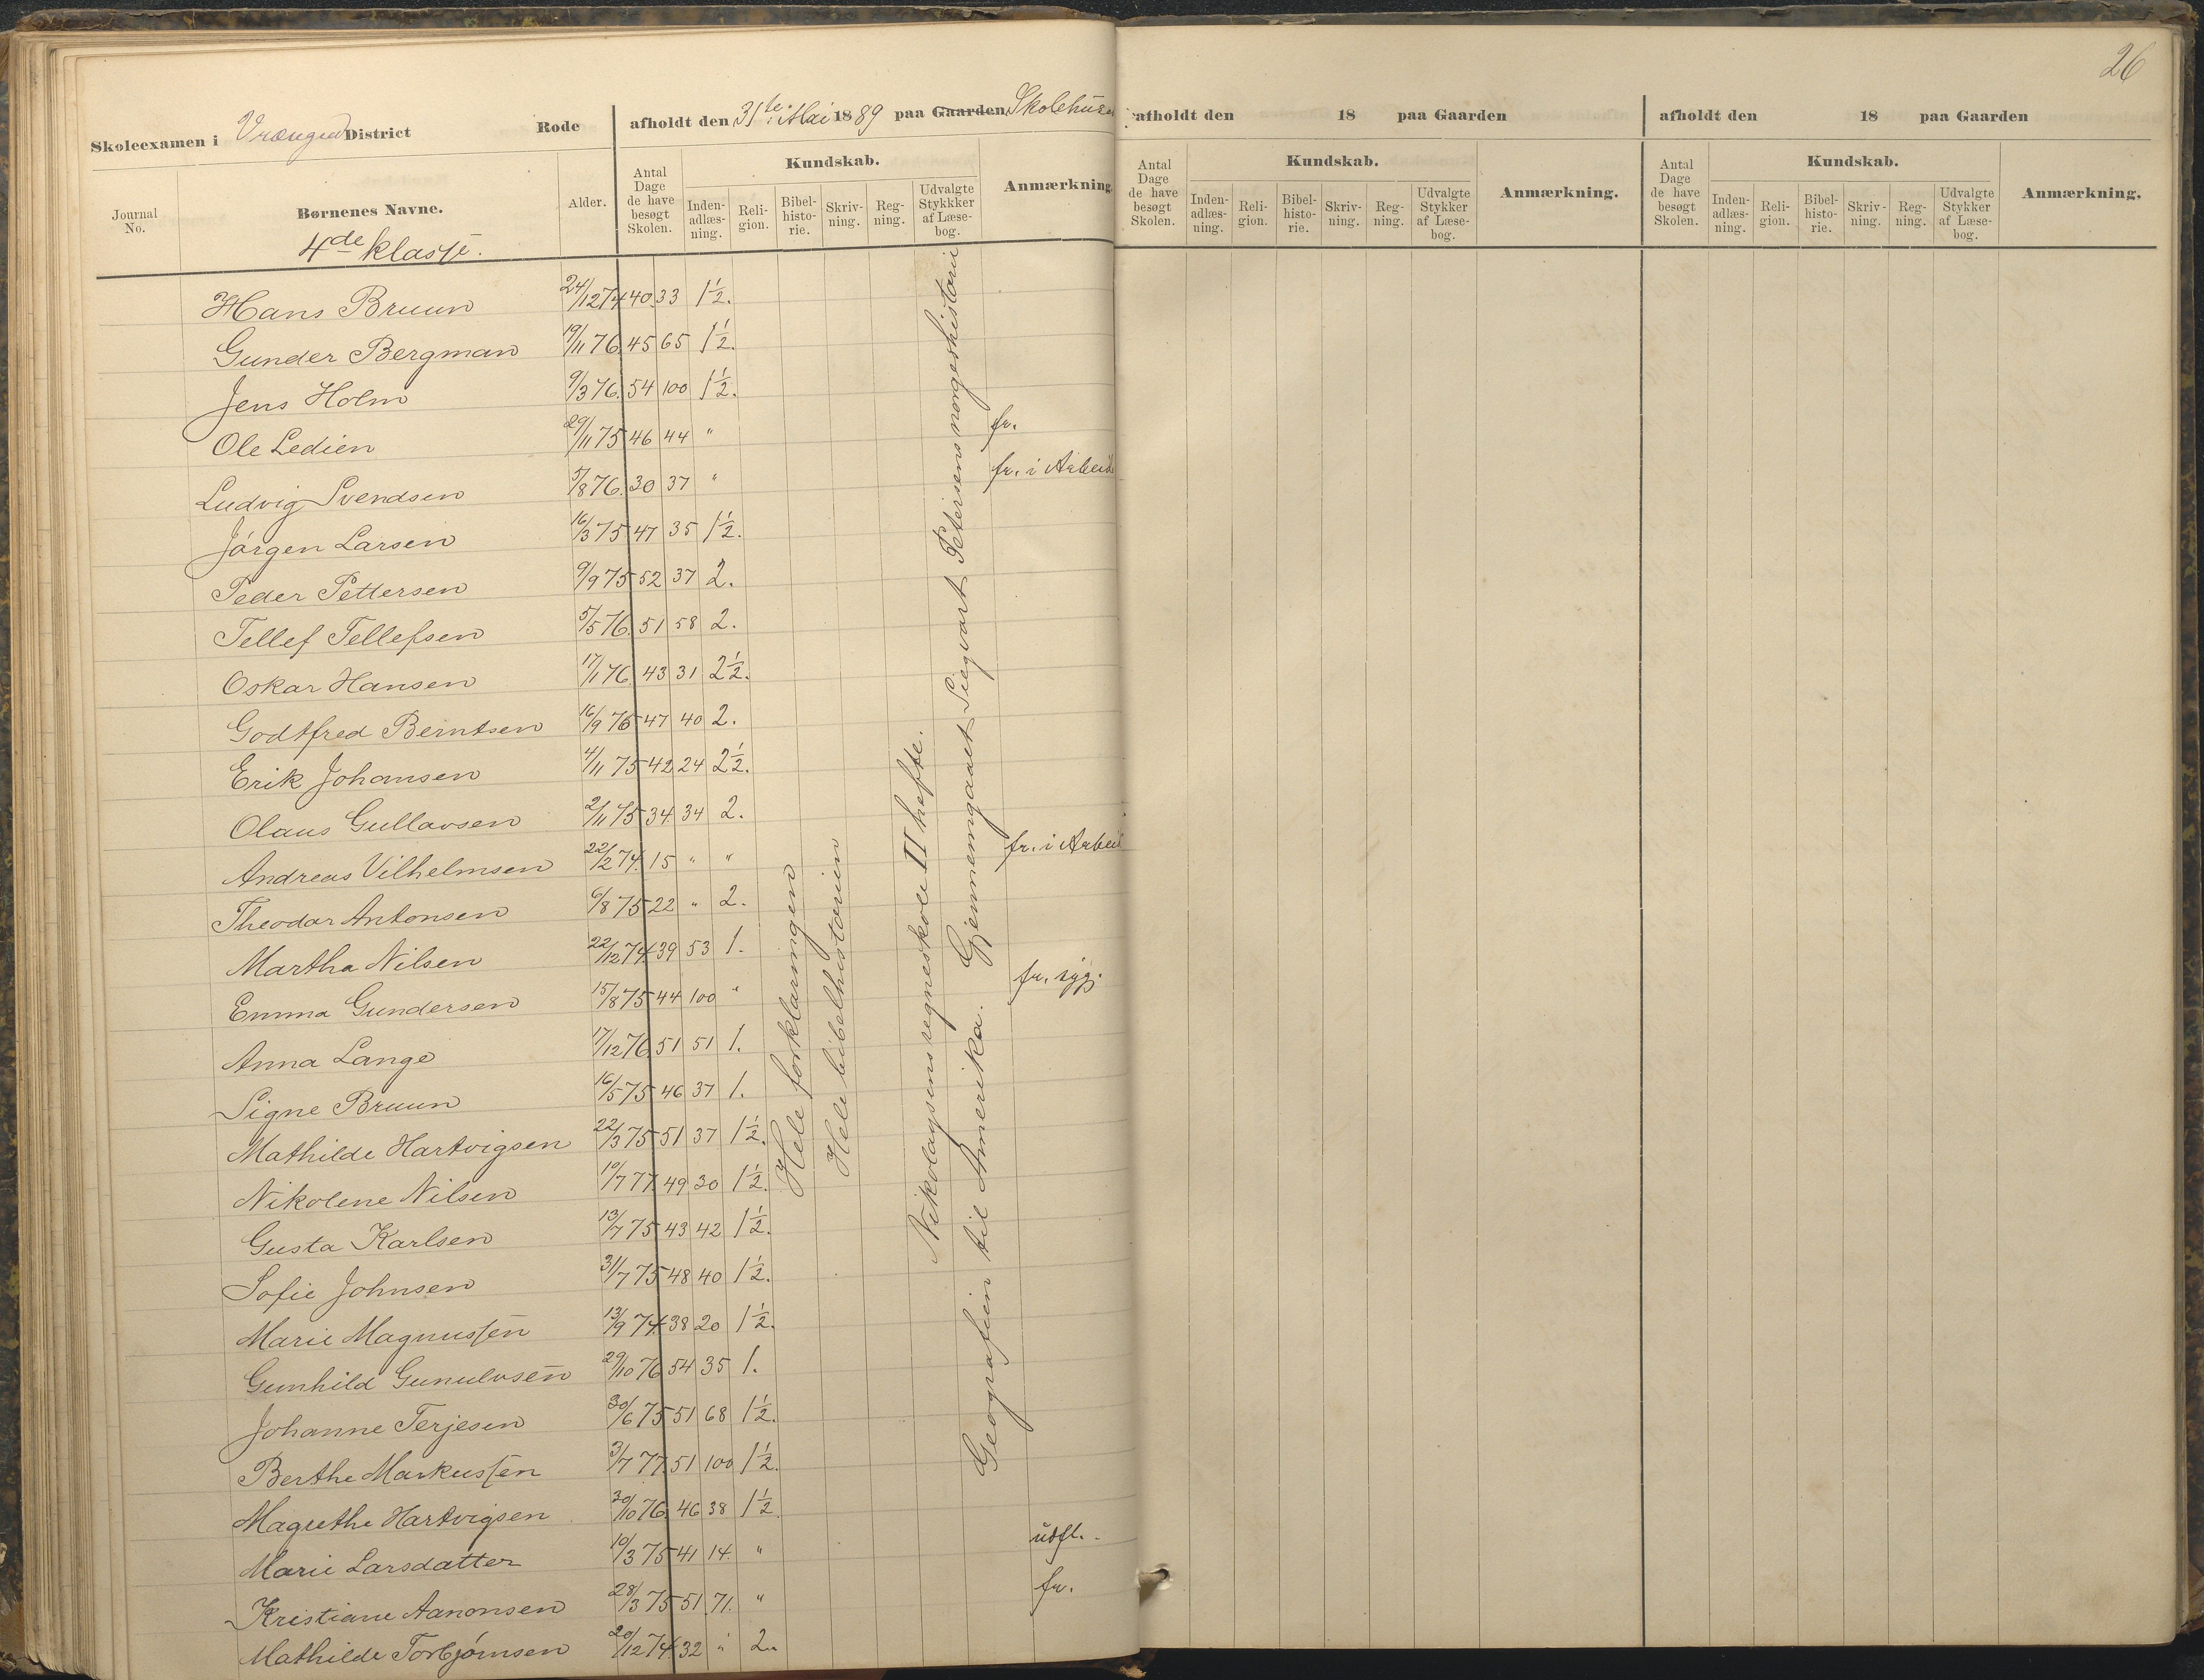 26
Skoleexamen i Vrængen District Rode afholdt den 31te Mai 1889 paa Gaarden Skolehuset
Journal No. Børnenes Navne. Alder. Antal Dage de have besøgt Skolen. Kundskab. Inden-adlæs-ning. Reli-gion. Bibel-histo-rie. Skriv-ning. Reg-ning. Udvalgte Stykkker af Læse-bog. Anmærkning.
4de klasse.
Hans Bruun 24/12 74 40. 33 1½.
Gunder Bergman 19/11 76. 45 65 1½.
Jens Holm 9/3 76. 54 100 1½.
Ole Ledien 29/11 75 46 44 " fr.
Ludvig Svendsen 5/8 76. 30 37 " fr. i Arbeide
Jörgen Larsen 16/3 75 47 35 1½.
Peder Pettersen 9/9 75 52 37 2.
Tellef Tellefsen 5/5 76. 51 58 2.
Oskar Hansen 17/1 76. 43 31 2½.
Godtfred Berntsen 16/9 76 47 40 2.
Erik Johansen 4/11 75 42 24 2½.
Olaus Gullavsen 2/11 75 34. 34 2.
Andreas Vilhelmsen 22/2 74. 15 " " fr. i Arbeid
Theodor Antonsen 6/8 75 22 " 2.
Martha Nilsen 22/12 74. 39 53 1.
Emma Gundersen 15/8 75 44 100 " fr. syg.
Anna Lange 17/12 76. 51 51 1.
Signe Bruun 16/5 75 46 37 1.
Mathilde Hartvigsen 22/3 75 51 37 1½.
Nikolene Nilsen 10/7 77. 49 30 1½.
Gusta Karlsen 13/7 75 43 42 1½.
Sofie Johnsen 31/7 75 48 40 1½.
Marie Magnussen 13/9 74. 38 20 1½.
Gunhild Gunulvsen 29/10 76 54 35 1.
Johanne Terjesen 30/6 75 51 68 1½.
Berthe Markussen 3/7 77. 51 100 1½.
Magrethe Hartvigsen 30/10 76. 46 38 1½
Marie Larsdatter 10/3 75 41 14. " udfl.
Kristiane Aanonsen 28/3 75 51 71. " fr.
Mathilde Torbjörnsen 20/12 74. 32 " 2.
Hele forklaringen
Hele bibelhistorien
Nikolaysens regneskole II hefte.
Geografien til Amerika. Gjennemgaaet Siegvart Petersens norgeshistorie
afholdt den 18 paa Gaarden
Antal Dage de have besøgt Skolen. Kundskab. Inden-adlæs-ning. Reli-gion. Bibel-histo-rie. Skriv-ning. Reg-ning. Udvalgte Stykker af Læse-bog. Anmærkning.
afholdt den 18 paa Gaarden
Antal Dage de have besøgt Skolen. Kundskab. Inden-adlæs-ning. Reli-gion. Bibel-histo-rie. Skriv-ning. Reg-ning. Udvalgte Stykker af Læse-bog. Anmærkning.